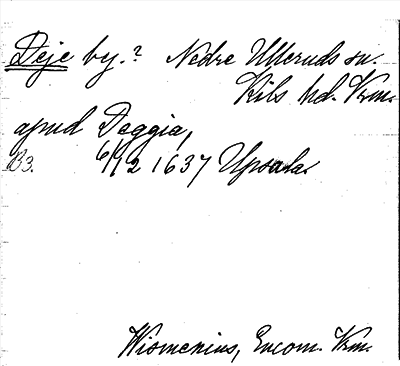 Deje by.? Nedre Ulleruds sn.
Kils hd. Vrm.
apud Deggia,
B3. 6/12 1637 Upsala.
Wismenius, Encom. Vrm.